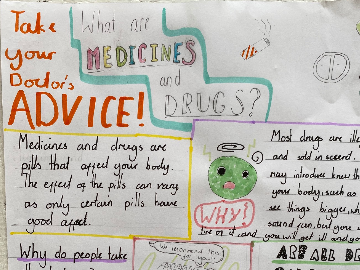 Take
your
Doctor's
ADVICE!
What are
MEDICINES
and
DRUGS?
Medicines and drugs are
pills that affect your body.
The effect of the pills can vary
as only certain pills have
good affect.
WHY!
Most drugs are ille
and sold in secret.
may introduce
your body, such as
see things bigger,
sound fun, but
you will get ill
Why do people take
ARE ALL